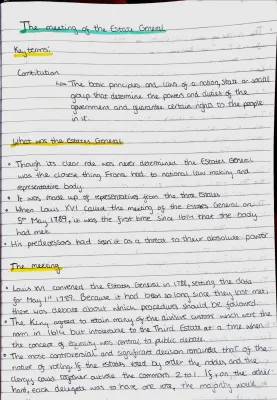 The meeting of the Estate General
Key terms:
Constitution
↳ The basic principles and laws of a nation, state or social
group that determine the powers and duties of the
government and guarantee certain rights to the people
in it.
What was the Estates General
• Though its clear role was never determined the Estates General
was the closest thing France had to national law making and
representative body.
• It was made up of representatives from the three Estates
• When Louis XVI called the meeting of the Estates General on
5th May 1789, it was the first time since 1614 that the body
had met.
• His predecessors had seen it as a threat to their absolute power
The meeting
• Louis XVI convened the Estates General in 1788, setting the date
for May 1st 1789. Because it had been so long since they last met,
there was debate about which procedures should be followed.
• The King agreed to retain many of the divisive customs which were the
norm in 1614 but intolerable to the Third Estate at a time when
the concept of equality was central to public debate.
• The most controversial and significant decision remained that of the
nature of voting. If the estates voted by order the nobles and the
clergy could together outvote the commons 2 to 1. If, on the other
hand, each delegate was to have one vote, the majority would